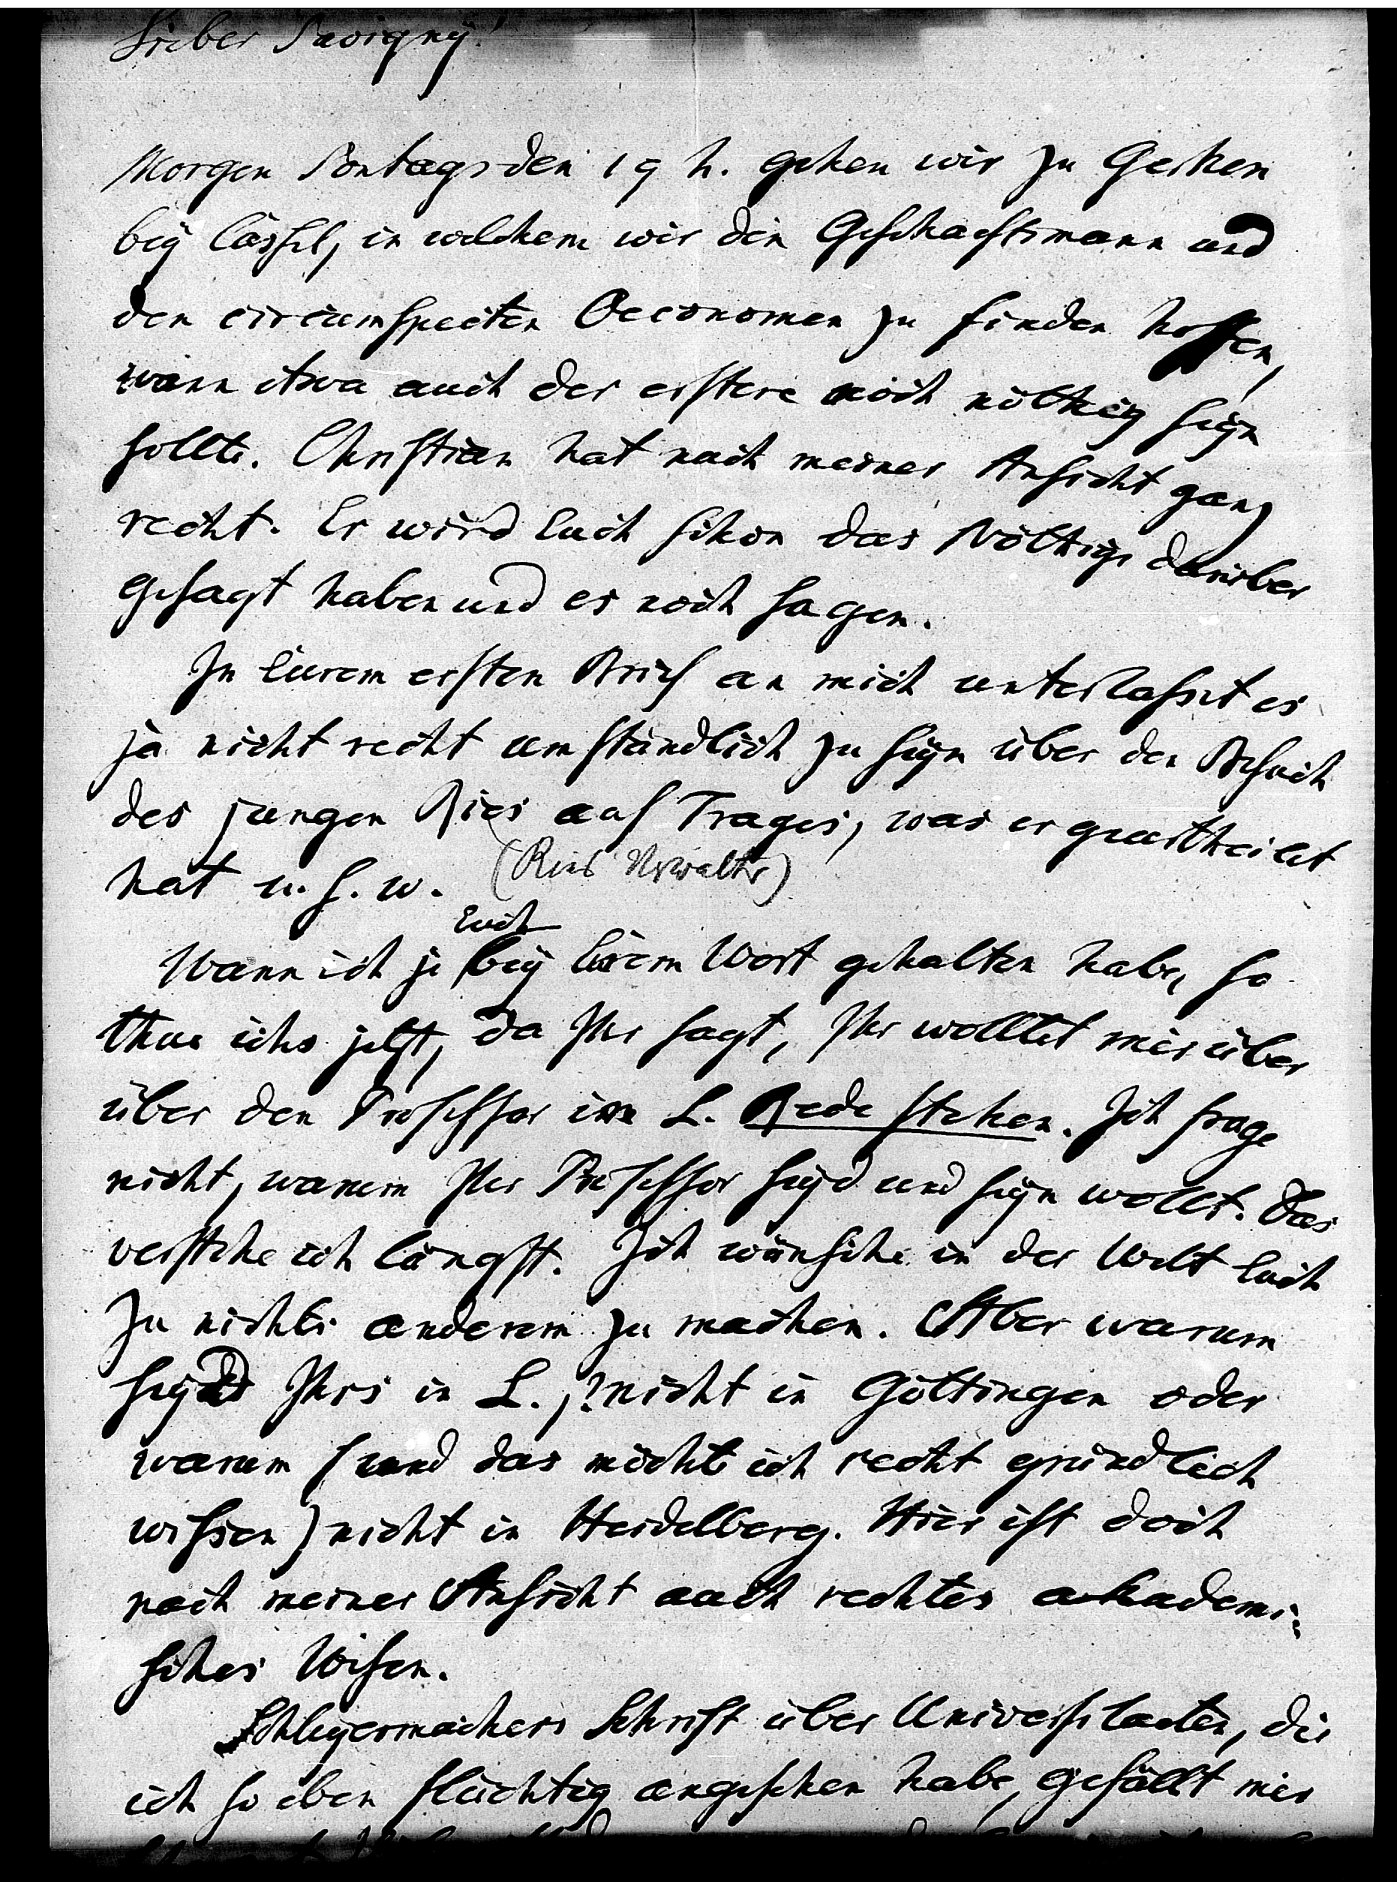 Lieber Savigny!
Morgen Sontags den 19 h. gehen wir zu Gerken
bey Cassel, in welchem wir den Geschaeftsmann und
den circumspecten Oeconomen zu finden hoffen,
wann etwa auch der erstere noch nöthig seyn
sollte. Christian hat nach meiner Ansicht ganz
recht. Er wird Euch schon das Nöthige darüber
gesagt haben und es noch sagen.
In Eurem ersten Brief an mich unterlasset es
ja nicht recht umständlich zu seyn über den Besuch
des jungen Ries auf Trages, was er geurtheilet
hat u. s. w. (Ries Verwalter)
Euch
Wann ich je bey Eurem Wort gehalten habe, so
thue ichs jetzt, da Ihr sagt, Ihr wolltet mir über
über den Professor in L. Rede stehen. Ich frage
nicht, warum Ihr Professor seyd und seyn wollt. Das
verstehe ich längst. Ich wünsche in der Welt Euch
zu nichts anderem zu machen. Aber warum
seyd Ihrs in L.,? nicht in Göttingen oder
warum (und das möchte ich recht gründlich
wissen) nicht in Heidelberg. Hier ist doch
nach meiner Ansicht auch rechtes akademi-
sches Wesen.
Schleyermachers Schrift über Universitaeten, die
ich so eben flüchtig angesehen habe, gefällt mir